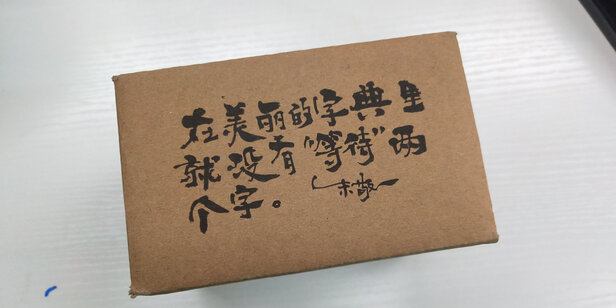 在美丽的字典里
就没有“等待”两
个字。